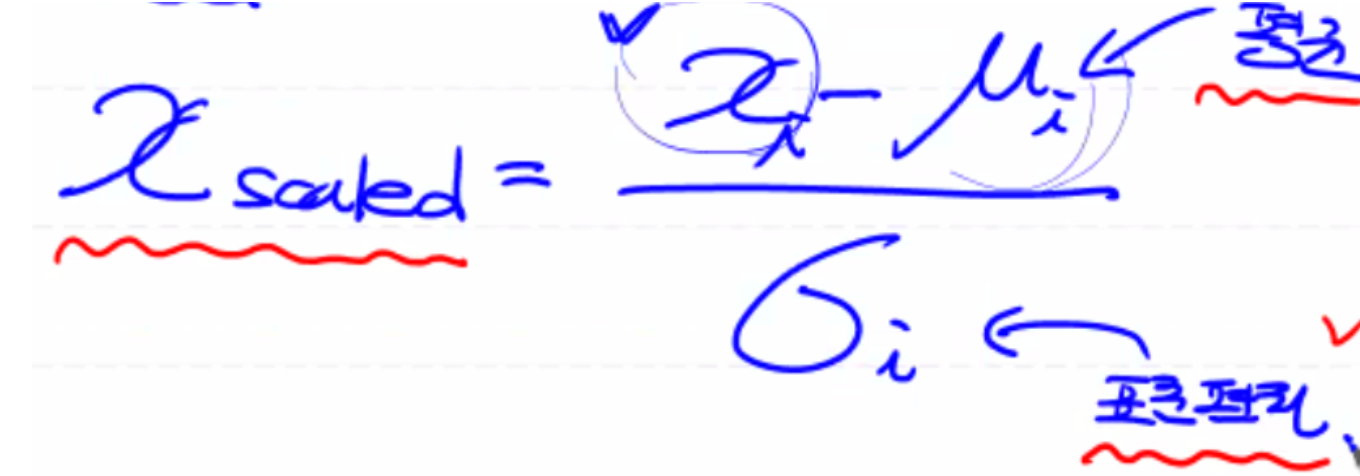 x scaled = (x_i - μ_i) / σ_i
평균
표준편차